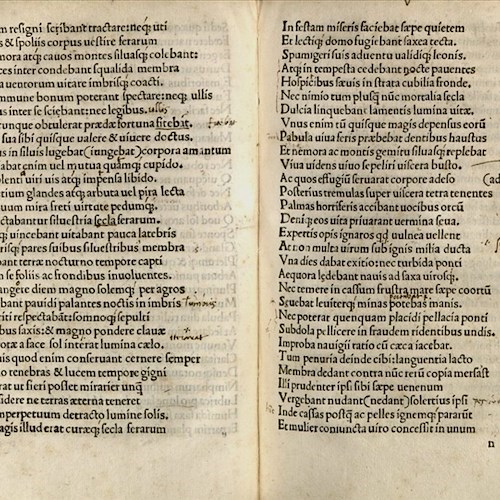 m resigni scribant tractare: neq; uti
is & spoliis corpus uestire ferarum
mora atq; cauos montes siluasq; colebant:
ces inter condebant squalida membra
a uentorum uitare imbrisq; coacti.
mmune bonum poterant spectare: neq; ullis
inter se scirent: nec legibus.
unque obtulerat prædæ fortuna
sibi quisque ualere & uiuere doctus.
us in siluis iugebat (iungebat) corpora amantum
abat enim uel mutua quamq; cupido.
olenti uiri uis atq; impensa libido.
etium glandes atq; arbuta uel pira lecta
uum mira freti uirtute pedumq;.
ctabantur siluestria secla ferarum.
q; uincebant uitabant pauca latebris
risq; pares suibus siluestribus membra
bant terræ nocturno tempore capti
m se foliis ac frondibus inuoluentes.
angere diem magno solemq; per agros
bant pauidi palantes noctis in umbris
iti respectabant: somnoq; sepulti
bus saxis: & magno pondere clauæ
otæ a face sol inferat lumina cælo.
is quod enim consuerant cernere semper
o tenebras & lucem tempore gigni
rat ut fieri posset mirarier unq;
idere ne terras æterna teneret
mperpetuum detracto lumine solis.
agis illud erat curæq; secla ferarum
In festam miseris faciebat sæpe quietem
Et lectiq; domo fugiebant saxea tecta.
Spumigeri suis aduentu ualidiq; leonis.
Atq; in tempesta cedebant nocte pauentes
Hospitibus sæuis in strata cubilia fronde.
Nec nimio tum plusq; nūc mortalia secla
Dulcia linquebant lamentis lumina uitæ.
Vnus enim tū quisque magis depensus eorū
Pabula uiua feris præbebat dentibus haustus
Et nemora ac montis gemitu siluasq; replebat
Viua uidens uiuo sepeliri uiscera busto.
At quos effugiū seruarat corpore adeso
Posterius tremulas super uiscera tetra tenentes
Palmas horriferis accibant uocibus orcū
Deniq; eos uita priuarant uermina seua.
Expertis opis ignaros qd uulnera uellent
At non multa uirum sub ignis milia ducta
Vna dies dabat exitio: nec turbida ponti
Aequora lædebant nauis ad saxa uirosq;.
Nec temere in cassum frustra mare sæpe coortū
Sæuebat leuiterq; minas potebas manis.
Nec poterat quenquam placidi pellacia ponti
Subdola pellicere in fraudem ridentibus undis.
Improba nauigii ratio cū cæca iacebat.
Tum penuria deinde cibi: languentia lacto
Membra dedant contra nūc rerū copia mersast
Illi prudenter ipsi sibi sæpe uenenum
Vergebant nudant (nedant) solertius ipsi
Inde cassas postq; ac pelles ignemq; pararūt
Et mulier coniuncta uiro concessit in unum
n